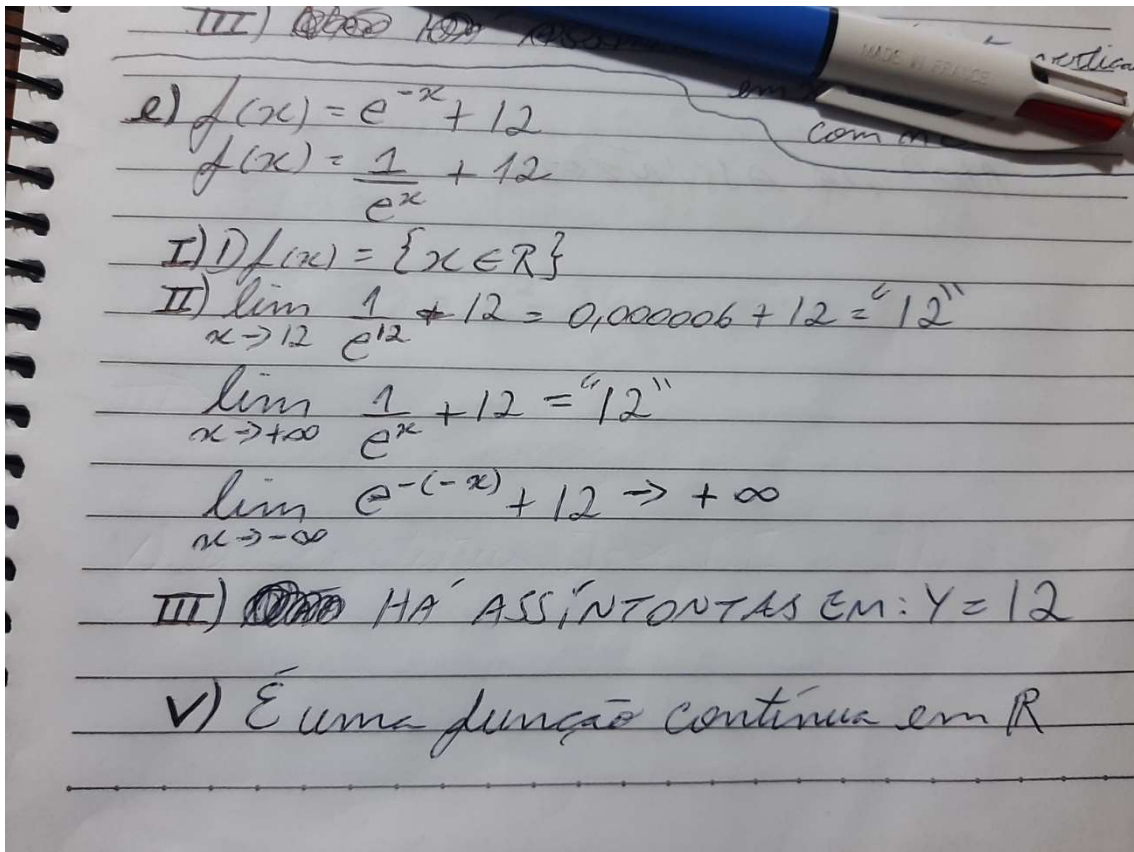 III)
vertica
em
com
MADE IN FRANCE
e) f(x) = e^-x + 12
f(x) = 1/e^x + 12
I) Df(x) = {x ∈ R}
II) lim x→12 1/e^12 + 12 = 0,000006 + 12 = "12"
lim x→+∞ 1/e^x + 12 = "12"
lim x→-∞ e^-(-x) + 12 → +∞
III) HÁ ASSÍNTONTAS EM: Y = 12
V) É uma função contínua em R